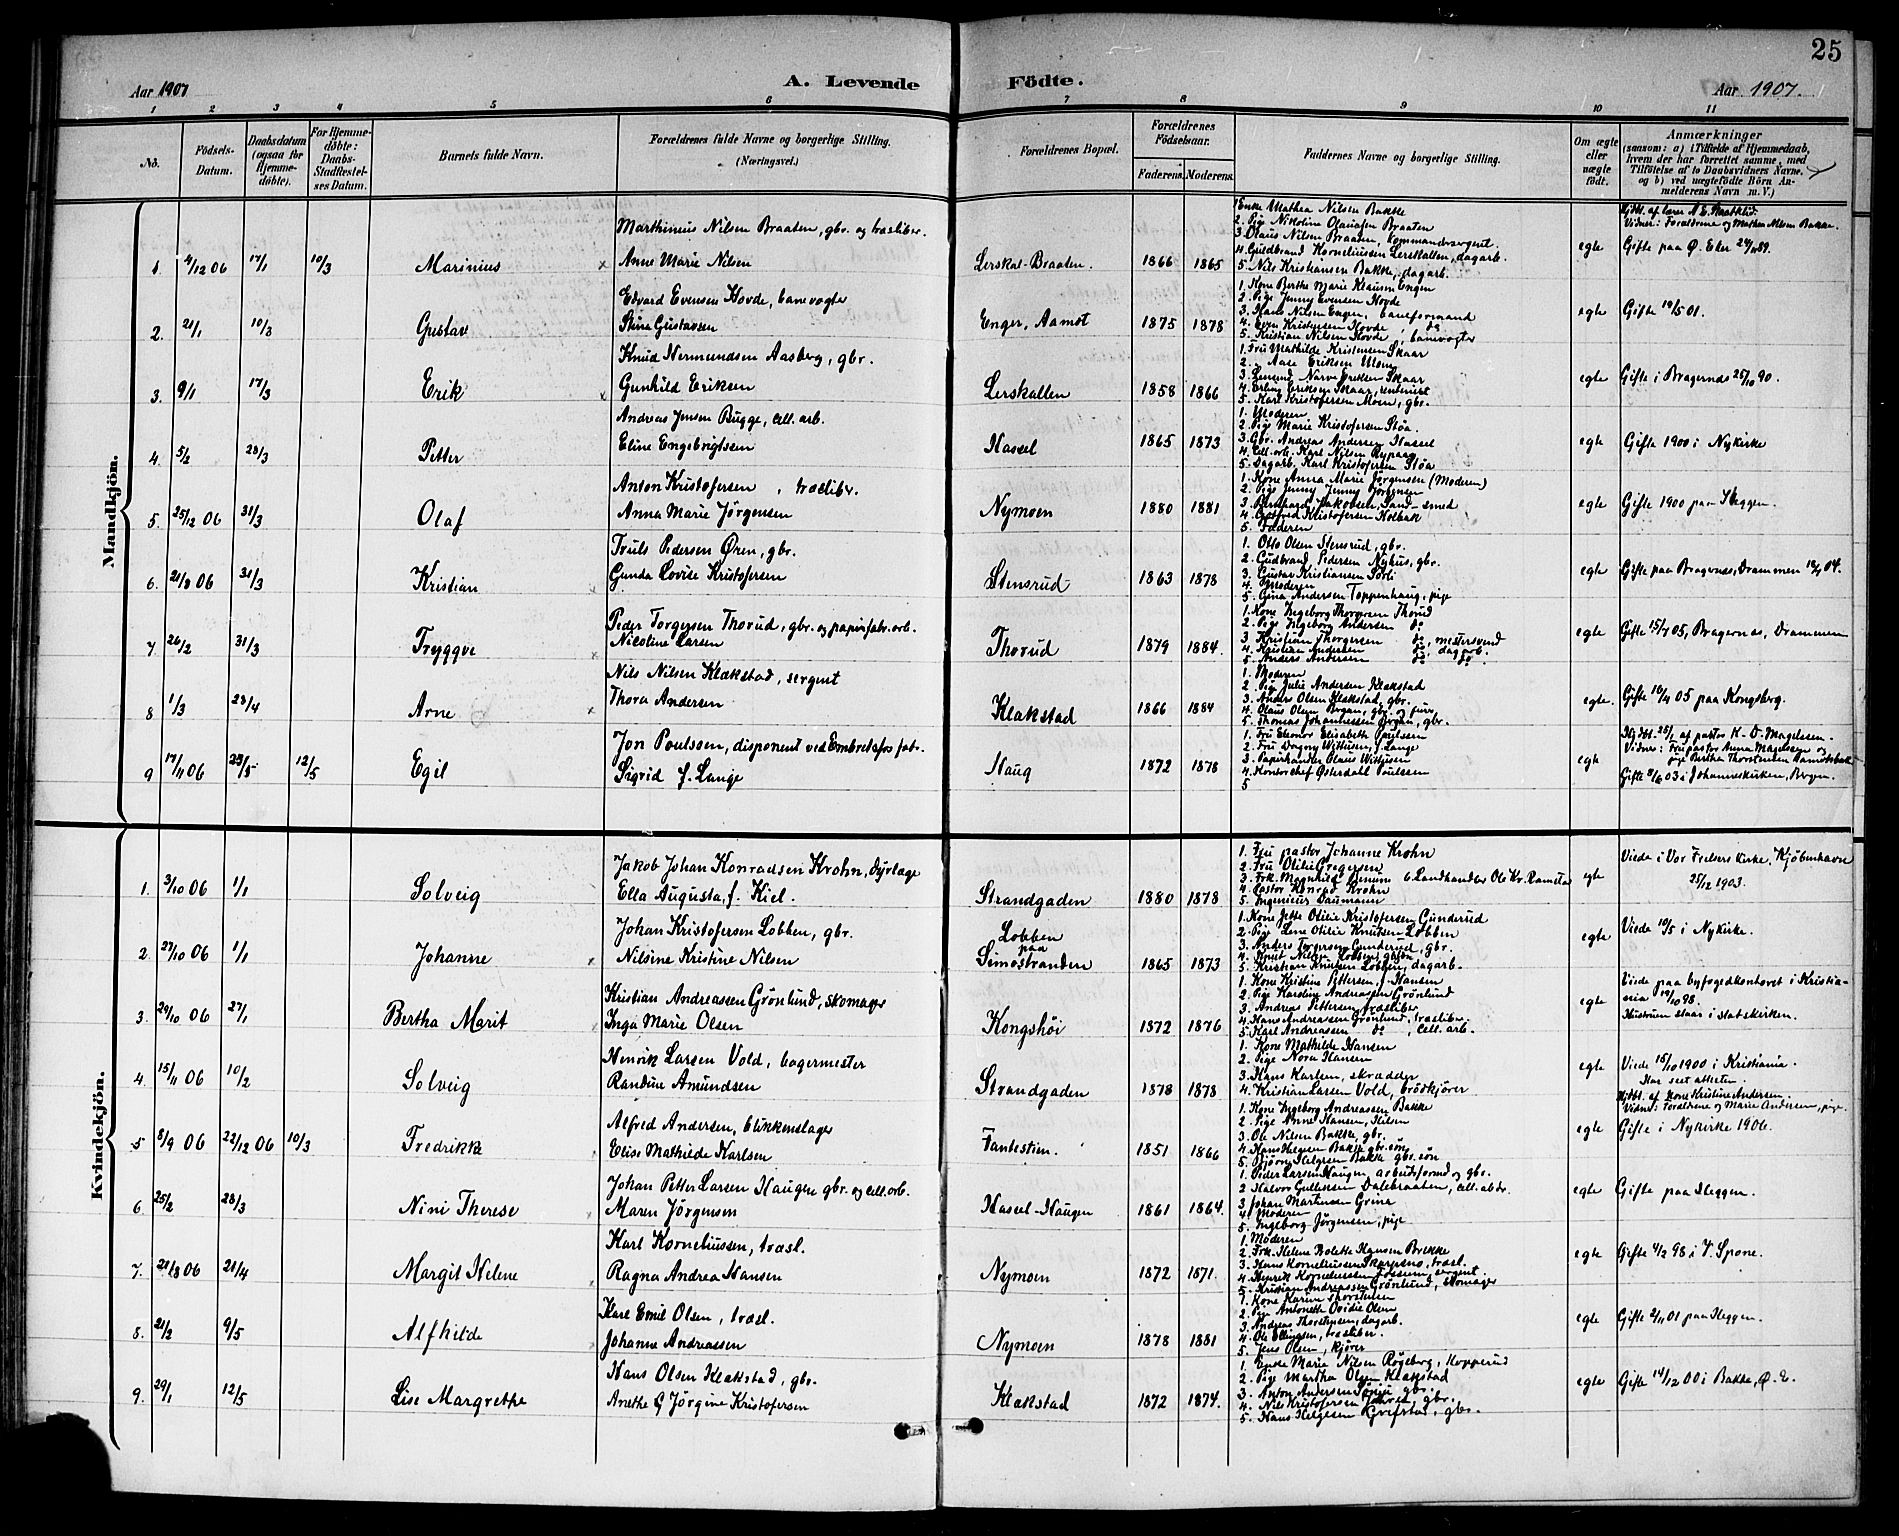 25
Aar 1907
A. Levende
Födte.
Aar 1907.
1 2 3 4 5 6 7 8 9 10 11
No.
Födsels-Datum.
Daabsdatum (ogsaa for Hjemme-döbte).
For Hjemme-døbte: Daabs-Stadfæstel-ses Datum.
Barnets fulde Navn.
Forældrenes fulde Navne og borgerlige Stilling.
(Næringsvei.)
Forældrenes Bopæl.
Forældrenes Födselsaar.
Faderens. Moderens.
Faddernes Navne og borgerlige Stilling.
Om ægte eller uægte födt.
Anmærkninger
(saasom: a) i Tilfælde af Hjemmedaab, hvem der har forrettet samme, med Tilföielse af to Daabsvidners Navne, og b) ved uægtefödte Börn An-melderens Navn m. V.)
Mandkjön.
Marthinius Nilsen Braaten, gbr. og træsliber.
1. 4/12 06 17/1 10/3 Marinius Anne Marie Nilsen
Lerskal-Braaten. 1866 1865
1 Enke Mathea Nilsen Bakke
2. Pige Nikoline Olausen Braaten
3. Olaus Nilsen Braaten, kommandersergent
4. Guldbrand Korneliussen Lerskallen, dagarb.
5. Nils Kristiansen Bakke, dagarb.
egte
Vidner: Forældrene og Mathea Nilsen Bakke.
Gifte paa Ø. Eker 24/11 89.
Edvard Evensen Hovde, banevogter
2. 21/1 10/3 Gustav Stina Gustavsen
Enger, Aamot 1875 1878
1. Kone Berthe Marie Klausen Enger
2. Pige Jenny Evensen Hovde
3. Hans Nilsen Enger, baneformand
4. Even Kristensen Hovde, do
5. Kristian Nilsen Hovde, banevogter
egte Gifte 19/5 01.
Knud Nermundsen Aasberg, gbr.
3. 9/1 17/3 Erik Gunhild Eriksen
Lerskallen 1858 1866
1. Fru Mathilde Kristensen Skaar
2. Aase Eriksen
3. Narve Eriksen Skaar
4. Erling Eriksen Skaar,
5. Karl Kristofersen Moen, gbr.
egte Gifte i Bragernes 25/10 90.
Andreas Jensen Bugge, cell. arb.
4. 5/2 28/3 Petter Eline Engebrigtsen
Hassel 1865 1873
1. Moderen
2. Pige Marie Kristofersen Stöa.
3. Gbr. Andreas Andersen Hassel
4. Cell. arb. Karl Nilsen Rypaas
5. Dagarb. Karl Kristofersen Stöa
egte Gifte 1900 i Nykirke
Anton Kristofersen, træsliber.
5. 25/12 06 31/3 Olaf Anna Marie Jörgensen
Nymoen 1880 1881
1. Kone Anna Marie Jörgensen (Moderen)
2. Pige Jenny Jenny Jörgensen
3. Bernhard Jakobsen, Sand-smed
4. Kristofersen Holbak
5. Faderen
egte Gifte 1900 paa Heggen.
Truls Pedersen Øren, gbr.
6. 21/8 06 31/3 Kristian Gunda Lovise Kristofersen
Stensrud 1863 1878
1. Otto Olsen Stensrud, gbr.
2. Gudbrand Pedersen Nyhus, gbr.
3. Gustav Kristiansen Sorli
4. Moderen
5. Gina Andersen Toppenhaug, pige
egte Gifte paa Bragernes, Drammen 04.
Peder Torgersen Thorud, gbr. og papirfabr. arb.
7 26/2 31/3 Tryggve Nicoline Larsen
Thorud 1879 1884.
1. Kone Ingeborg Thorgersen Thorud
2. Pige Ingeborg Andersen do
3 Kristian Thorgersen do, mestersvend
4. Kristian Andersen do, dagarb.
5. Anders Andersen do do.
egte Gifte 05, Bragernes, Drammen
Nils Nilsen Klækstad, sergent
8 1/3 23/4 Arne Thora Andersen
Klakstad 1866 1884
1. Moderen
2. Pige Julie Andersen Klækstad
3. Anders Olsen Klækstad, gbr.
4. Olaus Olsen
5. Thomas Johannessen Bryan, gbr.
egte. Gifte 05 paa Kongsberg.
Jon Poulsson, disponent ved Embretsfos fabr.
9 17/11 06 12/5 Egil Sigrid f. Lange
Haug 1872 1878
1. Fru Eleonor Elisabeth Poulssen
2. Fru Dagny Wittusen, f. Lange
3. Papirhandler Olaus Wittusen
4. Kontorchef Østerdahl Poulssen
5
egte
Hjdbt. af pastor K. O. Magelssen.
Vidner: Fru pastor Anna Magelssen og
pige Bertha Thorstensen Aamotsbak
Gifte 8/6 03 i Johanneskirken, Bergen.
Kvindekjön.
Jakob Johan Konradsen Krohn, Dyrlæge
1. 3/10 06 1/1 Solveig Ella Augusta, f. Kiel.
Strandgaden 1880 1878
1. Fru pastor Johanne Krohn
2. Fru Otilie Gregersen
3. Frk. Magnhild 6 Landhandler Ole Kr. Ramstad
4. Pastor Konrad Krohn
5. Ingeniør Daumann
egte
Viede i Vor Frelsers Kirke, Kjöbenhavn
25/12 1903.
Johan Kristofersen Lobben, gbr.
2. 27/10 06 1/1 Johanne Nilsine Kristine Nilsen
Lobben
paa
Simostranden 1865 1873
1. Kone Jette Otilie Kristofersen Gunderud
2. Pige Lene Otilie Knutsen Lobben
3. Anders Torgersen Gunderud, gbr.
4. Knut Nilsen Lobben,
5. Kristian Knutsen Lobben, dagarb.
egte Viede 10/5 i Nykirke.
Kristian Andreassen Grönlund, skomager
3. 29/10 06 27/1 Bertha Marit Inga Marie Olsen
Kongshöi 1872 1876
1. Kone Kristine Pettersen, f. Hansen
2. Pige Karoline Andreasen Grönlund
3. Andreas Pettersen, træsliber
4. Hans Andreassen Grönlund, træsliber.
5. Karl Andreassen do, Cell. arb.
egte
Viede paa byfogedkontoret i Kristia-
nia 19/10 98.
Hustruen staar i statskirken.
Henrik Larsen Vold, bagermester
4. 15/11 06 10/2 Solveig Randine Amundsen
Strandgaden 1878 1878
1. Kone Mathilde Hansen
2. Pige Nora Hansen
3. Hans Karlsen, skrædder
4. Kristian Larsen Vold, brödkjörer
egte
Viede 15/10 1900 i Kristiania.
Har seet attesten.
Alfred Andersen, blikkenslager
5 8/9 06 22/12 06 10/3 Fredrikke Elise Mathilde Karlsen
Fantestien. 1851 1866
1. Kone Ingeborg Andreassen Bakke
2. Pige Anne Hansen,
3. Ole Nilsen Bakke, gbr.
4. Hans Helgesen Bakke gbr. sön
5. Bjørn Helgesen Bakke gbr. sön
egte
Hjdbt. af Kone Kristine Andersen.
Vidner: Forældrene og Marie Andersen, pige.
Gifte i Nykirke 1906.
Johan Petter Larsen Haugen gbr. og cell. arb.
6. 25/2 28/3 Nini Therese Maren Jörgensen
Hassel-Haugen 1861 1864.
1. Peder Larsen Haugen, arbeidsformd og gbr.
2 Halvor Gulliksen Dalebraaten, cell. arb.
3 Johan Martinsen Grina
4. Moderen
5. Ingeborg Jörgensen, pige
egte Gifte paa Heggen.
Karl Korneliussen, træsl.
7. 21/8 06 21/4 Margit Helene Ragna Andrea Hansen
Nymoen 1872 1871.
1. Moderen
2. Frk. Helene Bolette Hansen Brekke
3. Hans Korneliussen Skarpsno, træsl.
4. Henrik Korneliussen Fossum, sergent
5. Kristian Andreassen Grönlund, skomager
egte Gifte 4/2 98 i V. Spone.
Karl Emil Olsen, træsl.
8. 21/2 9/5 Alfhilde Johanne Andreassen
Nymoen 1878 1881
1. Kone Karine Thorstensen
2. Pige Antonette Ovidie Olsen
3. Andreas Thorstensen, dagarb.
4. Ole Ellingsen, træsliber.
5. Jens Olsen, kjörer
egte Gifte 2/11 01 paa Heggen.
Hans Olsen Klækstad, gbr.
9. 29/1 12/5 Lise Margrethe Anethe G Jörgine Kristofersen
Klækstad 1872 1874.
1. Enke Marie Nilsen Rögeberg, Hopperud
2. Pige Martha Olsen Klækstad
3. Anton Andersen gbr.
4. Nils Kristofersen gbr.
5. Hans Helgesen Grefstad, gbr.
egte Gifte 14/12 00 i Bakke, Ø. E.